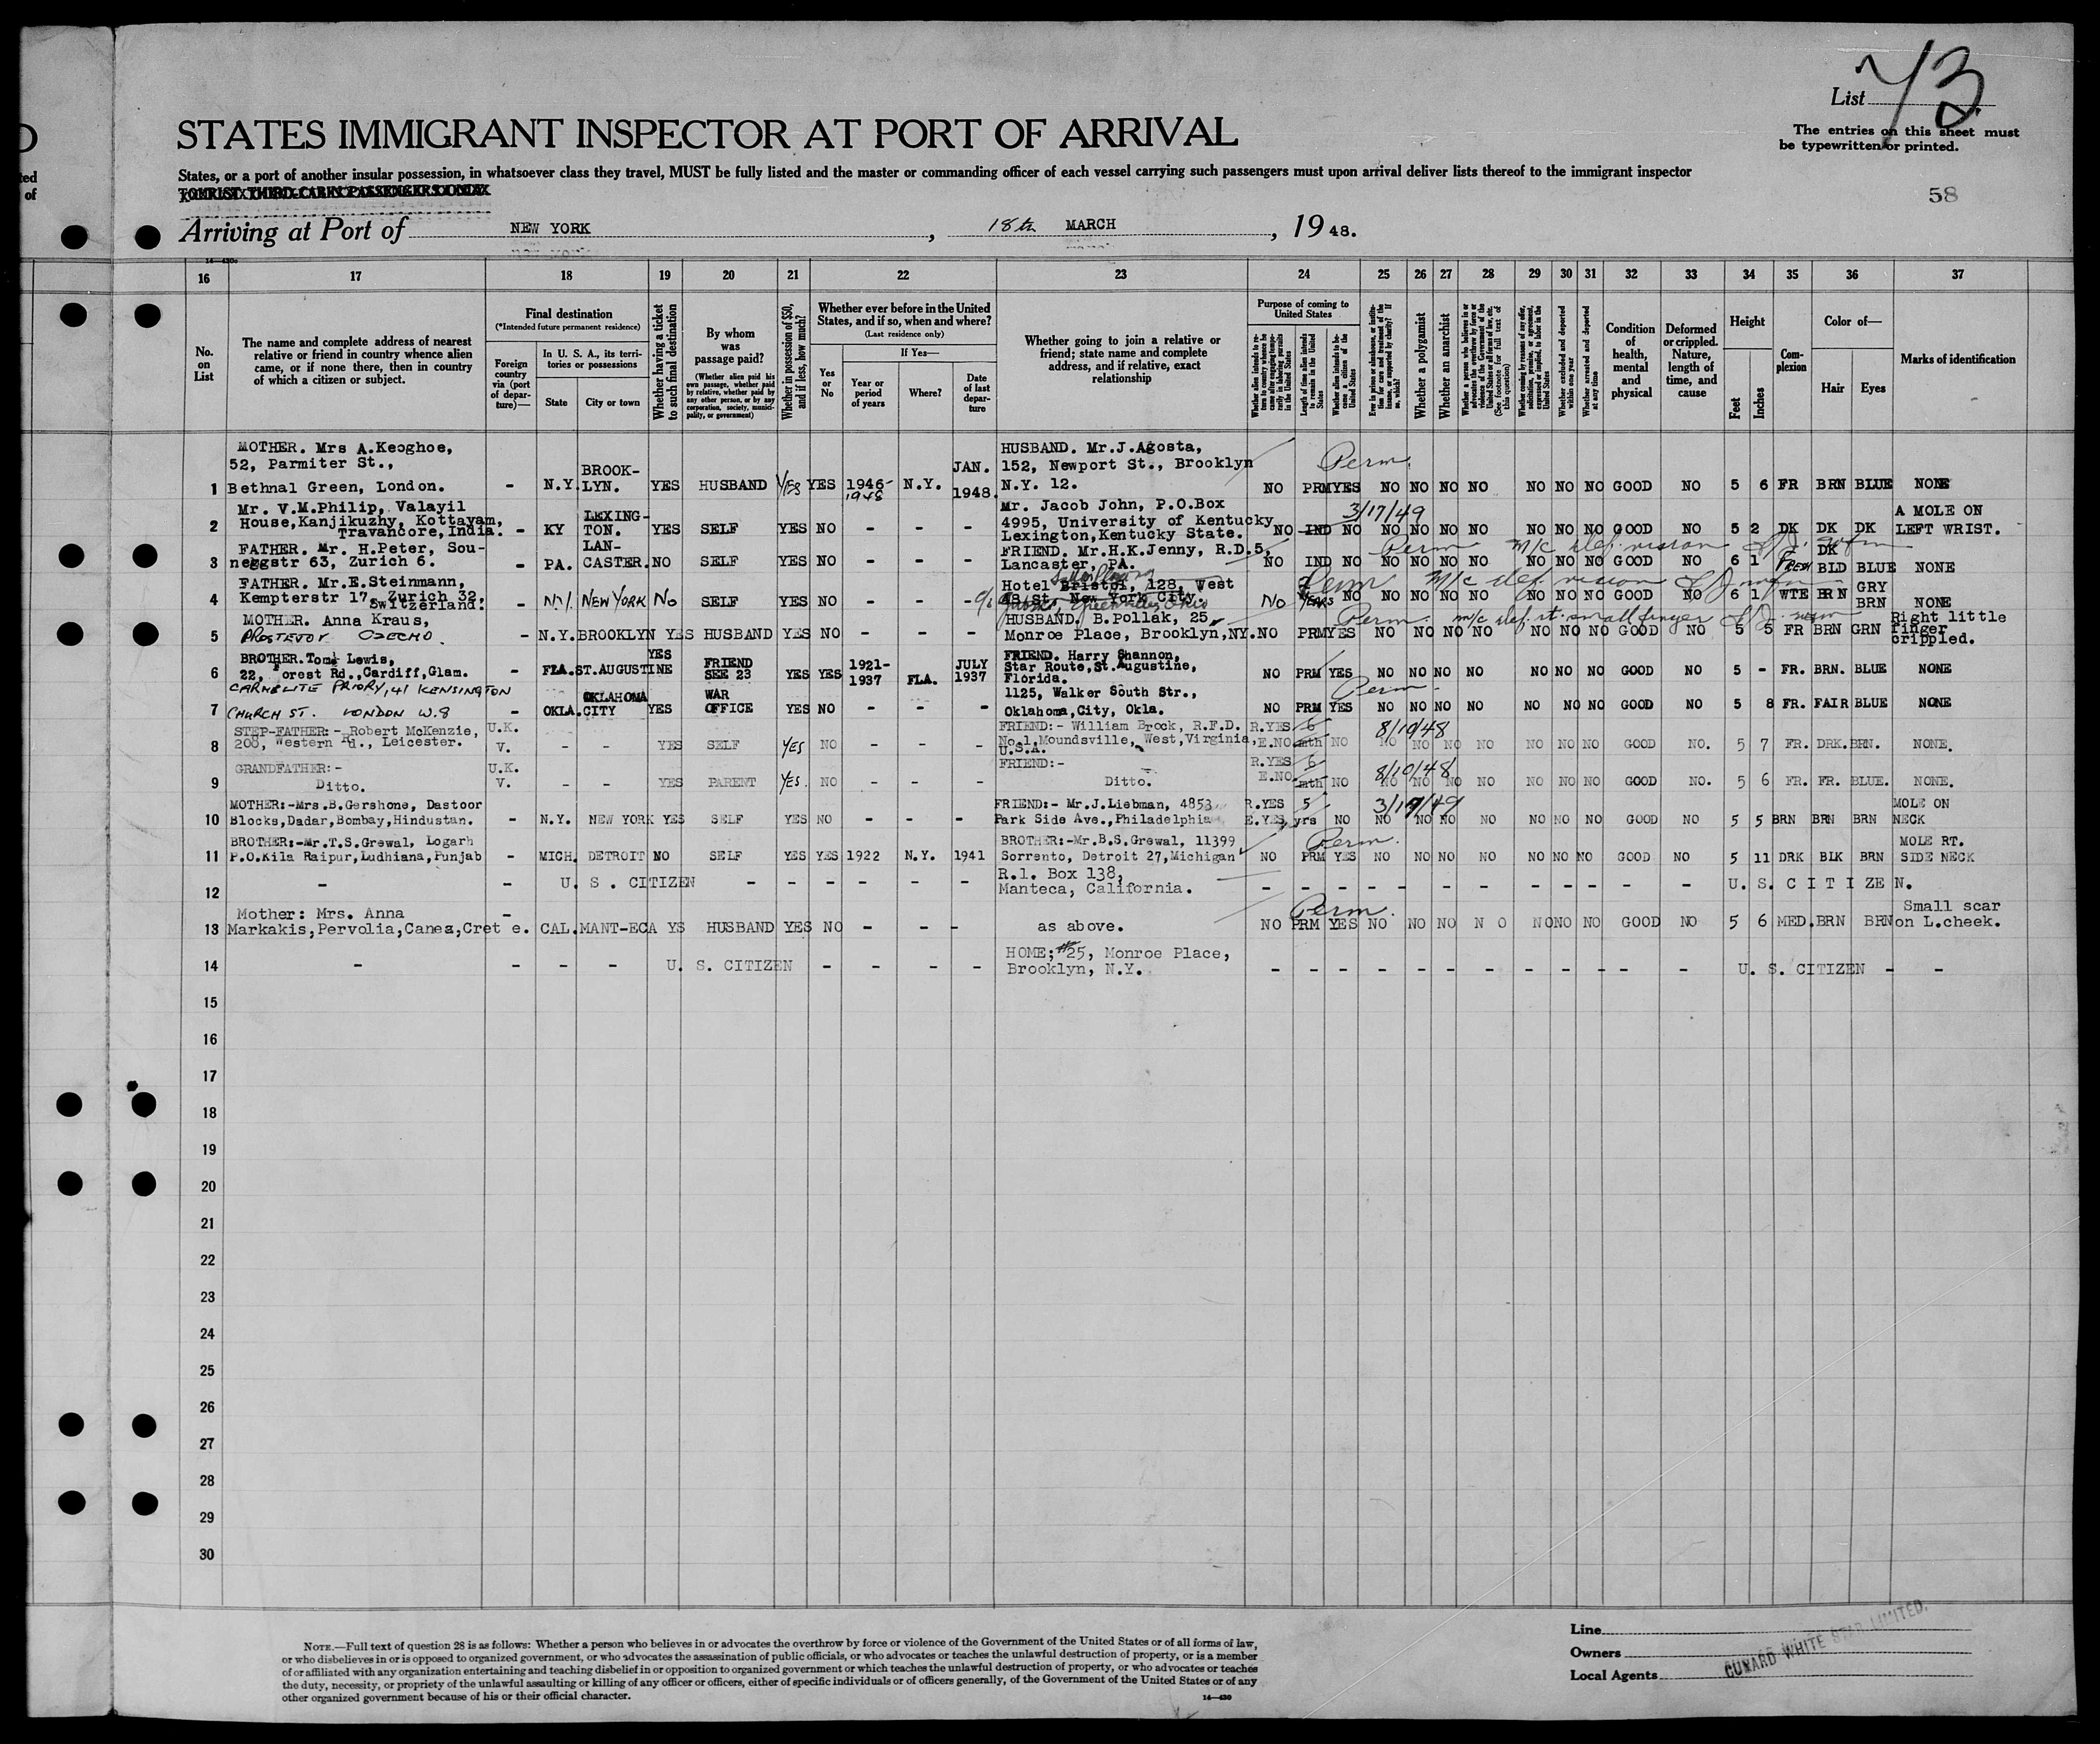 List 73
The entries on this sheet must
be typewritten or printed.
ted
of
STATES IMMIGRANT INSPECTOR AT PORT OF ARRIVAL
States, or a port of another insular possession, in whatsoever class they travel, MUST be fully listed and the master or commanding officer of each vessel carrying such passengers must upon arrival deliver lists thereof to the immigrant inspector
58
Arriving at Port of NEW YORK, 18th MARCH, 1948.
16 17 18 19 20 21 22 23 24 25 26 27 28 29 30 31 32 33 34 35 36 37
No. on List
The name and complete address of nearest relative or friend in country whence alien came, or if none there, then in country of which a citizen or subject.
Final destination
(*Intended future permanent residence)
Foreign country via (port of departure)—
In U. S. A., its territories or possessions
State
City or town
Whether having a ticket to such final destination
By whom was passage paid?
(Whether alien paid his own passage, whether paid by relative, whether paid by any other person, or by any corporation, society, municipality, or government)
Whether in possession of $50, and if less, how much?
Whether ever before in the United States, and if so, when and where?
(Last residence only)
Yes or No
If Yes—
Year or period of years
Where?
Date of last departure
Whether going to join a relative or friend; state name and complete address, and if relative, exact relationship
Purpose of coming to United States
Length of time alien intends to remain in the United States
Whether alien intends to become a citizen of the United States
Whether a polygamist
Whether an anarchist
Whether excluded and deported within one year
Whether arrested and deported at any time
Condition of health, mental and physical
Deformed or crippled. Nature, length of time, and cause
Height
Feet
Inches
Complexion
Color of—
Hair
Eyes
Marks of identification
1 MOTHER. Mrs A.Keoghoe, 52, Parmiter St., Bethnal Green, London. - N.Y. BROOK-LYN. YES HUSBAND YES YES 1946-1948 N.Y. JAN. 1948. HUSBAND. Mr.J.Agosta, 152, Newport St., Brooklyn N.Y. 12. Perm. NO PRM YES NO NO NO NO NO NO NO GOOD NO 5 6 FR BRN BLUE NONE
2 Mr. V.M.Philip, Valayil House,Kanjikuzhy, Kottayam, Travancore, India. - KY LEXING-TON. YES SELF YES NO - - - Mr. Jacob John, P.O.Box 4995, University of Kentucky Lexington,Kentucky State. 3/17/49 NO IND NO NO NO NO NO NO NO NO GOOD NO 5 2 DK DK DK A MOLE ON LEFT WRIST.
3 FATHER. Mr. H.Peter, Sou-neggstr 63, Zurich 6. - PA. LAN-CASTER. NO SELF YES NO - - - FRIEND. Mr.H.K.Jenny, R.D.5, Lancaster, PA. Perm m/c def. vision NO IND NO NO NO NO NO NO NO NO GOOD NO 6 1 FRESH DK BLD BLUE NONE
4 FATHER. Mr.E.Steinmann, Kempterstr 17, Zurich 32, Switzerland. - N.Y. NEW YORK NO SELF YES NO - - - Hotel Bristol, 128, West 48 St. New York City. Perm m/c def. vision No YEARS NO NO NO NO NO NO NO NO GOOD NO 6 1 WTE BRN GRY BRN NONE
5 MOTHER. Anna Kraus, PROSTEVOV CZECHO. - N.Y. BROOKLYN YES HUSBAND YES NO - - - HUSBAND. B.Pollak, 25, Monroe Place, Brooklyn,NY. Perm. m/c def. rt. small finger NO PRM YES NO NO NO NO NO NO NO GOOD NO 5 5 FR BRN GRN Right little finger crippled.
6 BROTHER.Tom Lewis, 22, Forest Rd.,Cardiff,Glam. - FLA. ST.AUGUSTINE YES FRIEND SEE 23 YES YES 1921-1937 FLA. JULY 1937 FRIEND. Harry Shannon, Star Route,St.Augustine, Florida. NO PRM YES NO NO NO NO NO NO NO GOOD NO 5 - FR. BRN. BLUE NONE
7 CARMELITE PRIORY, 41 KENSINGTON CHURCH ST. LONDON W.8 - OKLA. OKLAHOMA CITY YES WAR OFFICE YES NO - - - 1125, Walker South Str., Oklahoma,City, Okla. Perm. NO PRM YES NO NO NO NO NO NO NO GOOD NO 5 8 FR. FAIR BLUE NONE
8 STEP-FATHER:- Robert McKenzie, 208, Western Rd., Leicester. U.K. V. - - YES SELF YES NO - - - FRIEND:- William Brock, R.F.D. No.1,Moundsville, West,Virginia, U.S.A. R.YES E.NO 6 mth NO 8/10/48 NO NO NO NO NO NO NO GOOD NO. 5 7 FR. DRK. BRN. NONE.
9 GRANDFATHER:- Ditto. U.K. V. - - YES PARENT YES. NO - - - FRIEND:- Ditto. R.YES E.NO 6 mth NO 8/10/48 NO NO NO NO NO NO NO GOOD NO. 5 6 FR. FR. BLUE. NONE.
10 MOTHER:-Mrs.B.Gershone, Dastoor Blocks,Dadar,Bombay,Hindustan. - N.Y. NEW YORK YES SELF YES NO - - - FRIEND:- Mr.J.Liebman, 4853 Park Side Ave.,Philadelphia R.YES E.YES 5 yrs NO 3/17/49 NO NO NO NO NO NO NO GOOD NO 5 5 BRN BRN BRN MOLE ON NECK
11 BROTHER:-Mr.T.S.Grewal, Logarh P.O.Kila Raipur,Ludhiana,Punjab - MICH. DETROIT NO SELF YES YES 1922 N.Y. 1941 BROTHER:-Mr.B.S.Grewal, 11399 Sorrento, Detroit 27,Michigan Perm. NO PRM YES NO NO NO NO NO NO NO GOOD NO 5 11 DRK BLK BRN MOLE RT. SIDE NECK
12 - - U. S. CITIZEN - - - - - - R.1. Box 138, Manteca, California. - - - - - - - - - - - - U. S. CITIZEN.
13 Mother: Mrs. Anna Markakis,Pervolia,Canea,Crete. - CAL. MANT-ECA YS HUSBAND YES NO - - - as above. Perm. NO PRM YES NO NO NO NO NO NO NO GOOD NO 5 6 MED. BRN BRN Small scar on L.cheek.
14 - - - - U. S. CITIZEN - - - - HOME; #25, Monroe Place, Brooklyn, N.Y. - - - - - - - - - - - - U. S. CITIZEN - -
15
16
17
18
19
20
21
22
23
24
25
26
27
28
29
30
NOTE.—Full text of question 28 is as follows: Whether a person who believes in or advocates the overthrow by force or violence of the Government of the United States or of all forms of law,
or who disbelieves in or is opposed to organized government, or who advocates the assassination of public officials, or who advocates or teaches the unlawful destruction of property, or is a member
of or affiliated with any organization entertaining and teaching disbelief in or opposition to organized government or which teaches the unlawful destruction of property, or who advocates or teaches
the duty, necessity, or propriety of the unlawful assaulting or killing of any officer or officers, either of specific individuals or of officers generally, of the Government of the United States or of any
other organized government because of his or their official character.
14—430
Line
Owners
Local Agents
CUNARD WHITE STAR LIMITED.